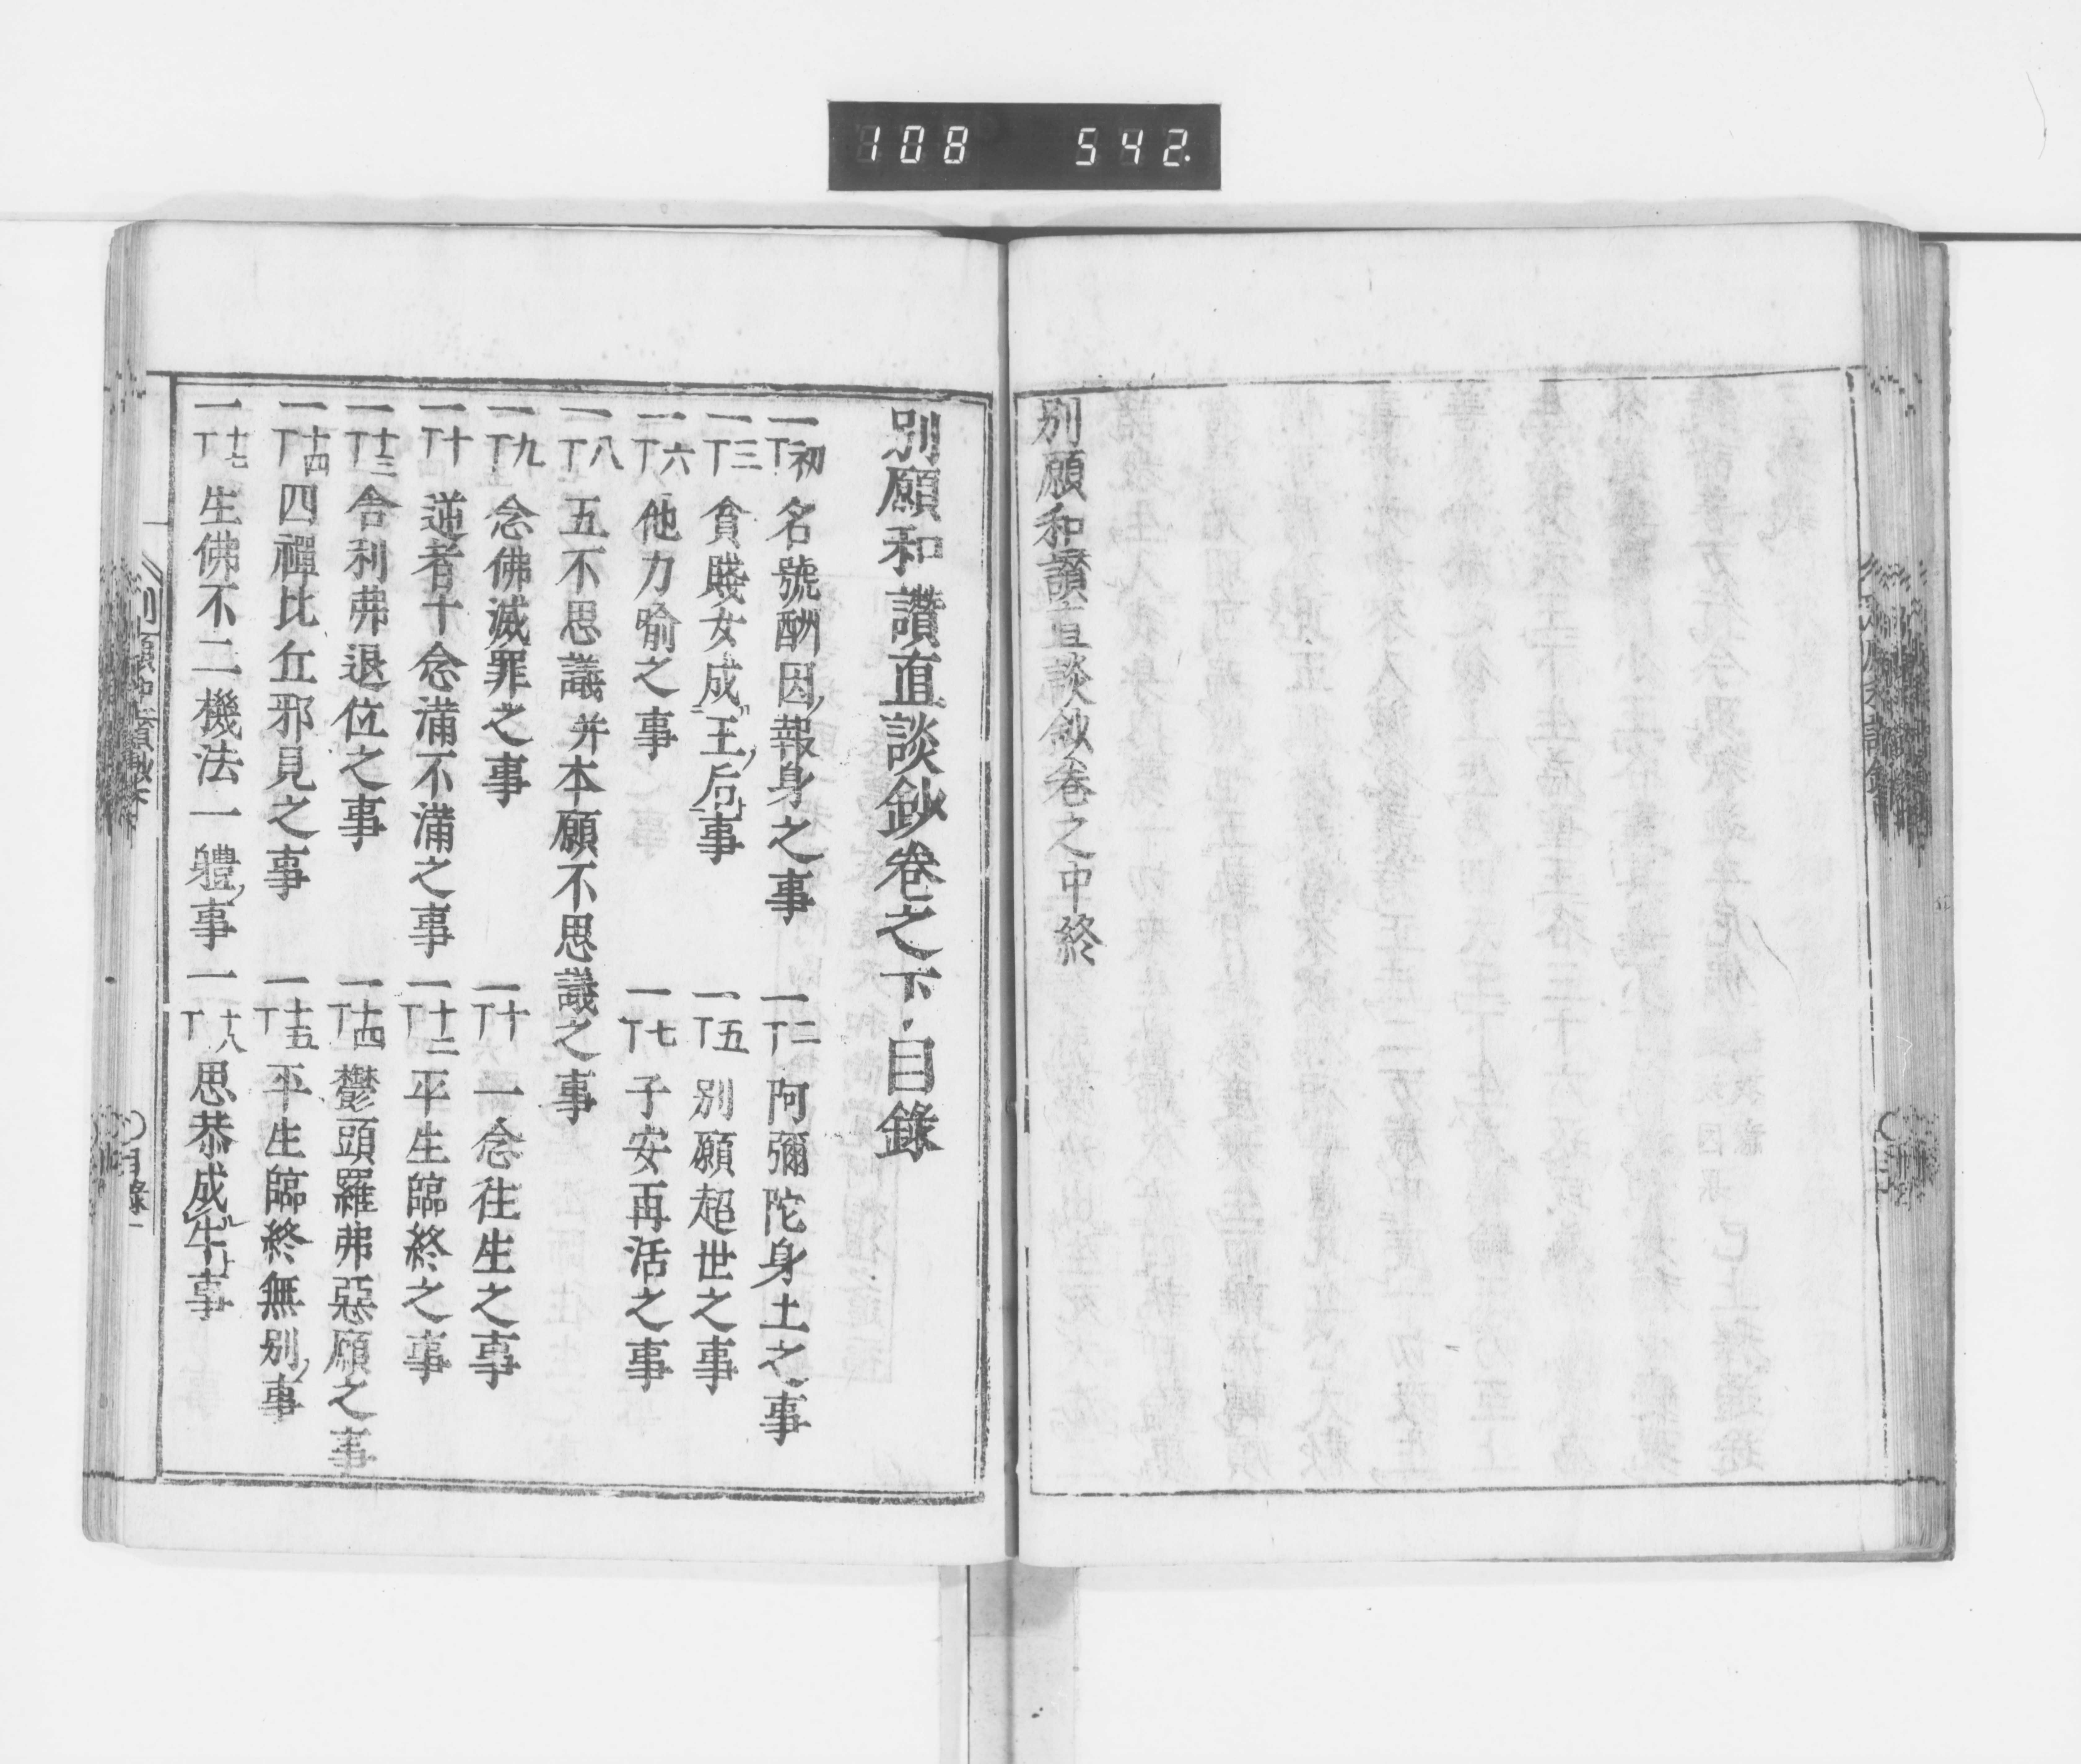 108 542
別願和讃直談鈔卷之中終
別願和讚直談鈔卷之下目錄
一初丁 名號酬因報身之事 一二丁 阿彌陀身土之事
一三丁 貧賤女成王后事 一五丁 別願超世之事
一六丁 他力喻之事 一七丁 子安再活之事
一八丁 五不思議并本願不思議之事
一九丁 念佛滅罪之事 一十丁 一念往生之事
一十丁 逆者十念滿不滿之事 一十二丁 平生臨終之事
一十三丁 舎利弗退位之事 一十四丁 鬱頭羅弗惡願之事
一十四丁 四禪比丘邪見之事 一十五丁 平生臨終無別事
一十七丁 生佛不二機法一體事 一十八丁 思恭成牛事
目錄 一